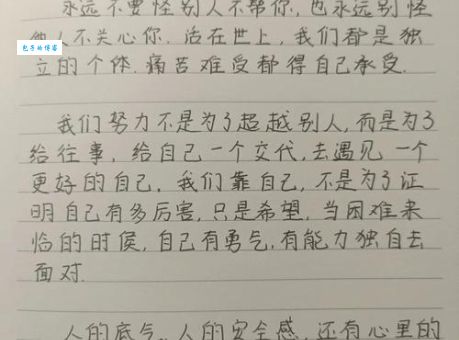 永远不要怪别人不帮你,也永远别怪
他人不关心你.活在世上,我们都是独
包子的博客
立的个体.痛苦难受都得自己承受.
我们努力不是为了超越别人,而是为了
给往事,给自己一个交代,去遇见一个
更好的自己.我们靠自己,不是为了证
明自己有多厉害,只是希望,当困难来
临的时候,自己有勇气,有能力独自去
面对.
人的底气,人的安全感,还有心里的